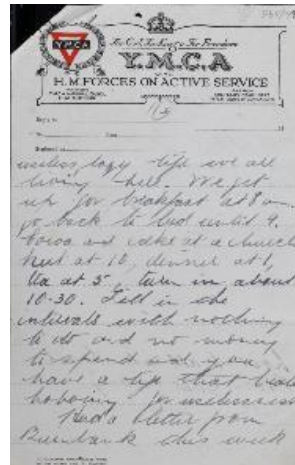 Y.M.C.A
For God, For King & For Freedom
Y.M.C.A
H.M. FORCES ON ACTIVE SERVICE
useless, lazy life we are
living here. We get
up for breakfast at 8 am
go back to bed until 9.
Cocoa and cake at a church
hut at 10, dinner at 1,
tea at 5, turn in about
10-30. Fill in the
intervals with nothing
to do and no money
to spend and you
have a life that beats
hoboing for uselessness
Had a letter from
this week